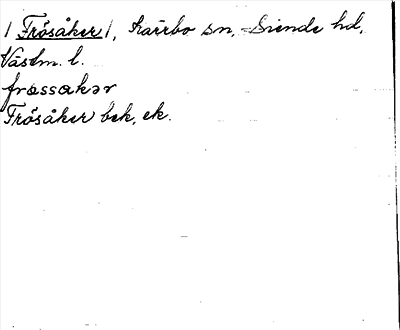 / Frösåker /, Kärrbo sn, Siende hd,
Västm. l.
frøssakər
Frösåker bek, ek.